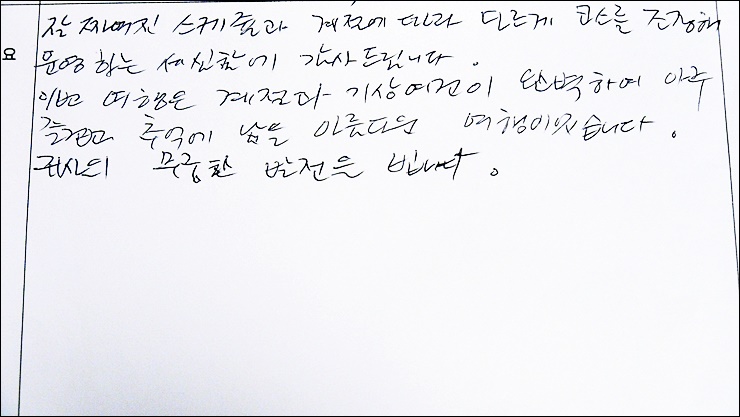 잘 짜여진 스케쥴과 계절에 따라 다르게 코스를 조정해
요
운영하는 세심함에 감사드립니다.
이번 여행은 계절과 기상여건이 완벽하여 아주
즐겁고 추억에 남을 아름다운 여행이었습니다.
귀사의 무궁한 발전을 빕니다.